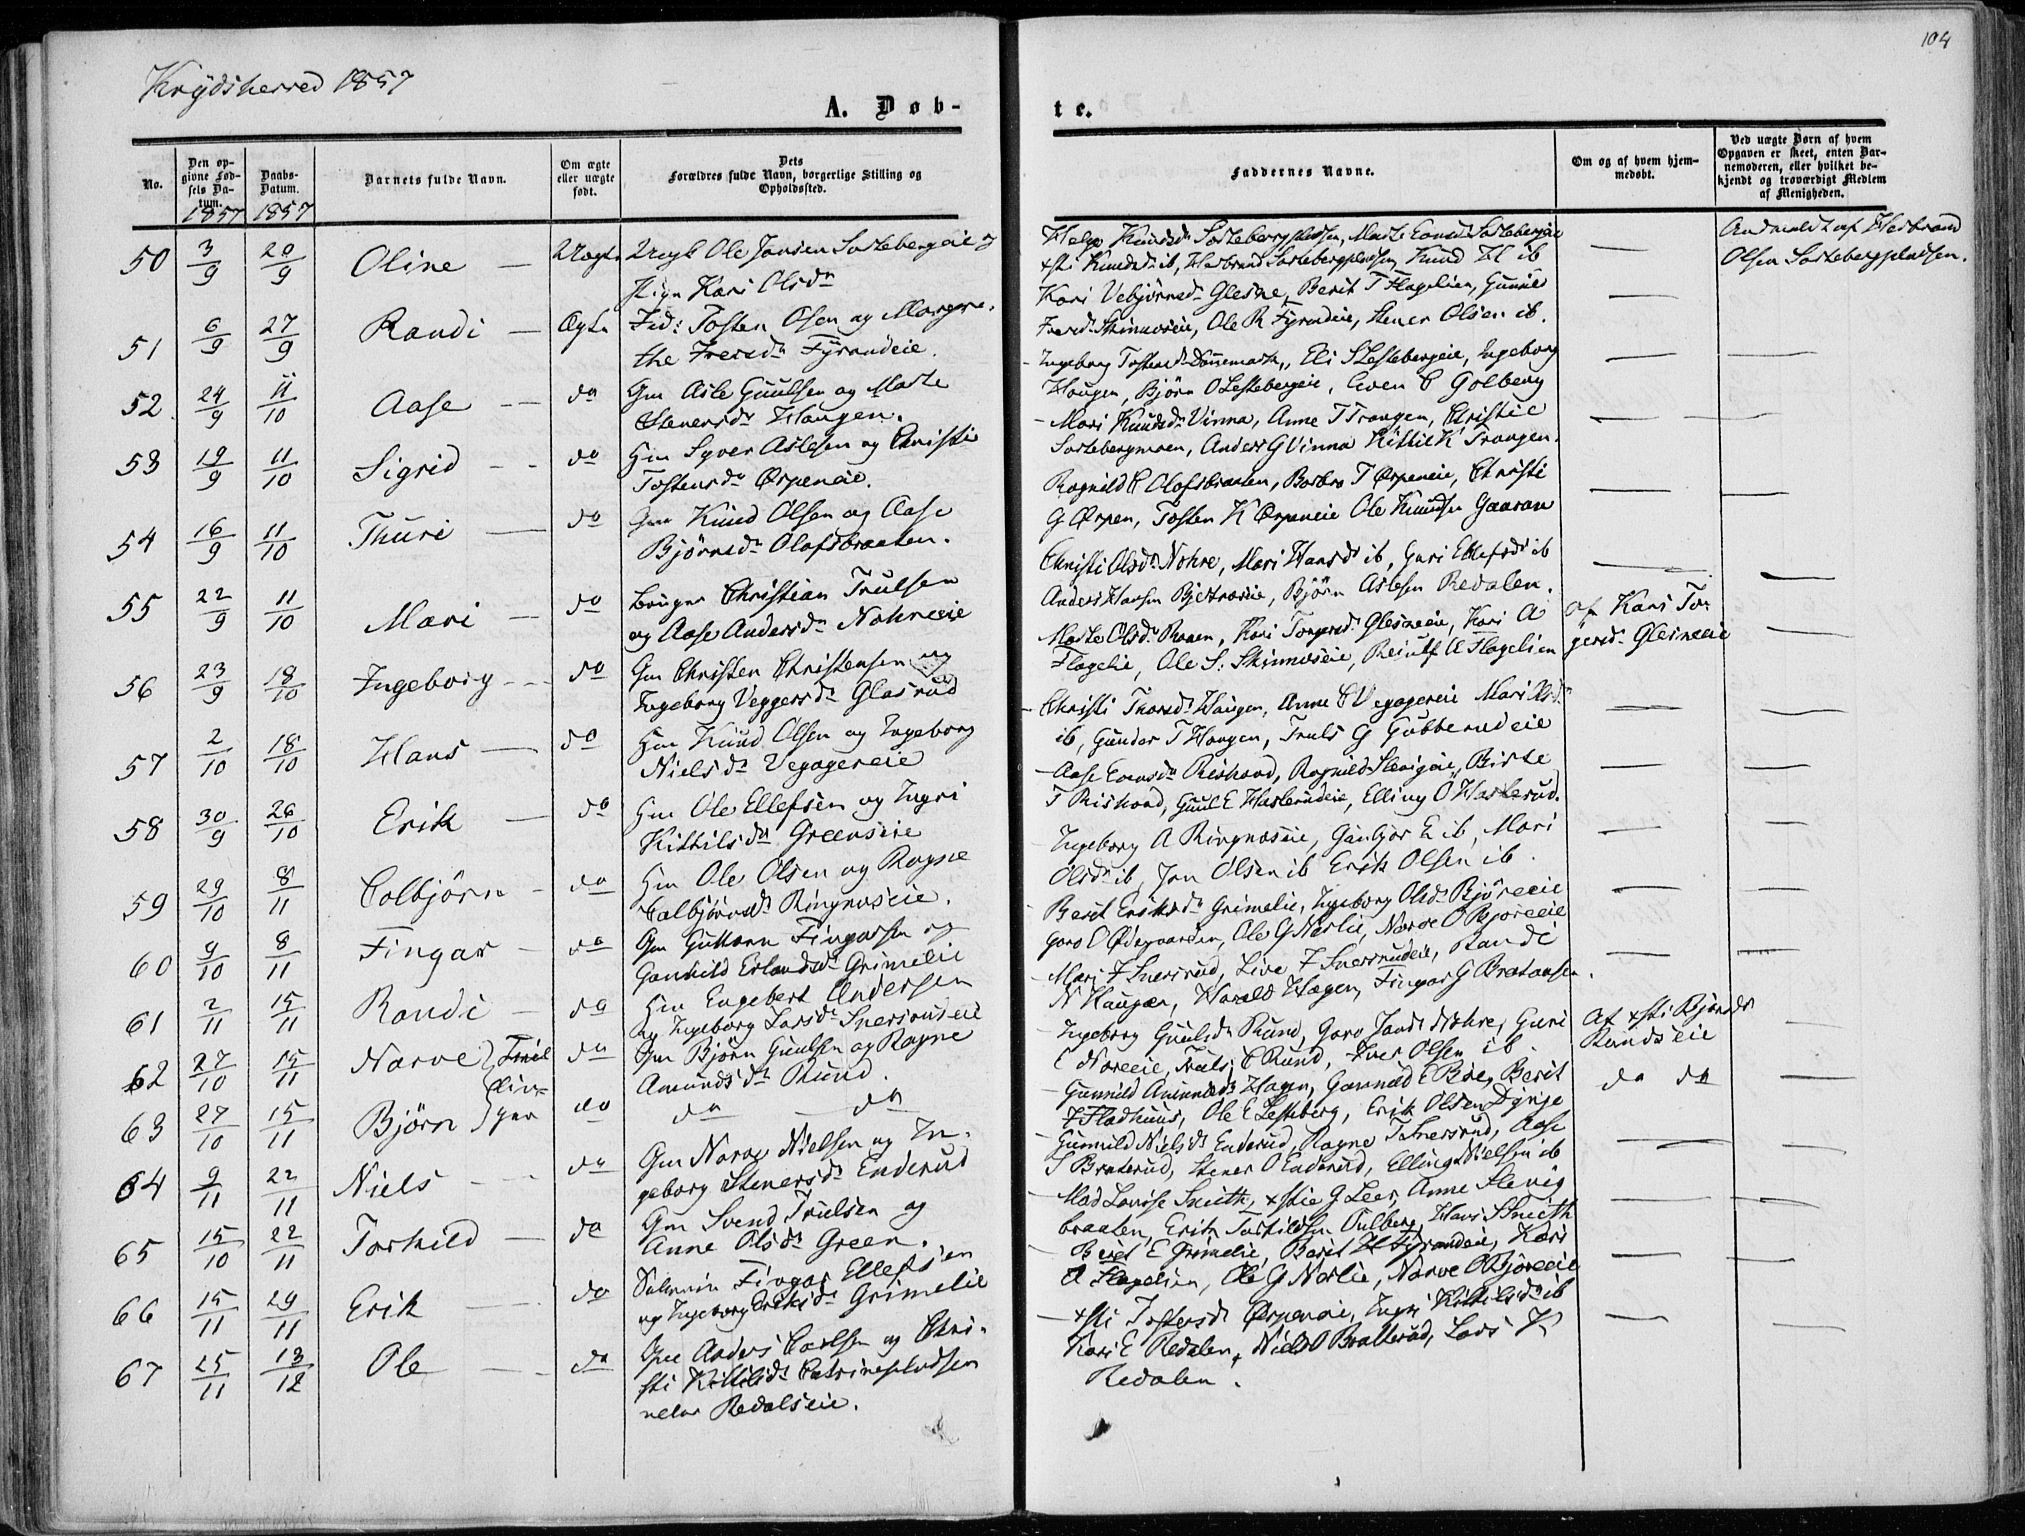 104
Krydsherred 1857
A. Døb-
te.
No.
Den op-
givne Fød-
sels Da-
tum.
1857
Daabs-
Datum.
1857
Barnets fulde Navn.
Om ægte
eller uægte
født.
Dets
Forældres fulde Navn, borgerlige Stilling og
Opholdssted.
Faddernes Navne.
Om og af hvem hjem-
medøbt.
Ved uægte Børn af hvem
Opgaven er skeet, enten Bar-
nemoderen, eller hvilket be-
kjendt og troværdigt Medlem
af Menigheden.
50 3/9 20/9 Oline — Uægte
Ole Jonsen
Pige Kari Olsdr
Anmeldt af Herbrand
Olsen Sorkebergpladsen.
51 6/9 27/9 Randi — Ægte Tosten Olsen og Margre-
the Iversdr Fyrandeie.
Kari Vebjørnsdr Glesne, Berit T Flagelien,
Ole R Fyrandeie, Stener Olsen ib.
52 24/9 11/10 Aase — do Gm Asle Guulsen og Marte
Stenersdr Haugen.
Haugen, Bjørn O Leskebergeie, Even C Golberg
53 19/9 11/10 Sigrid — do Hm Syver Aslesen og Christi
Tostensdr Ørpeneie.
Mari Knudsdr Vinna, Anne T Trangen, Christie
Sorkebergmoen, Anders G Vinna Kittil K Trangen.
54 16/9 11/10 Thuri — do Gm Knud Olsen og Aase
Bjørnsdr Olafsbraaten.
Ragnild C Olafsbraaten, Barbro T Ørpeneie, Christi
G Ørpen, Tosten K Ørpeneie Ole Knudsen Gaaran
55 22/9 11/10 Mari — do Bruger Christian Trulsen
og Aase Andersdr Nohreeie
Christi Olsdr Nohre, Mari Hansdr ib, Guri Ellefsdr ib
Anders Hansen Bjertnæseie, Bjørn Aslesen Redalen.
56 23/9 18/10 Ingeborg — do Gm Christen Christensen og
Ingeborg Veggersdr Glasrud
Flagelie, Ole S: Skinnæseie, Reiulf A Flagelien
af Kari Tor-
gersdr Glesneeie
57 2/10 18/10 Hans — do Hm Knud Olsen og Ingeborg
Nielsdr Vegagereie
Christi Thorsdr Haugen, Anne C Vegagereie Mari Olsdr
ib, Gunder T Haugen, Truls G Gubberudeie
58 30/9 26/10 Erik — do Hm Ole Ellefsen og Ingri
Kittilsdr Greenseie
T Riskoad, Guul E Haslerudeie, Elling O Haslerud.
59 29/10 8/11 Colbjørn — do Hm Ole Olsen og Ragne
Colbjørnsdr Ringnæseie.
Ingeborg A Ringnæseie, E ib, Mari
Olsdr ib, Jon Olsen ib Erik Olsen ib.
60 9/10 8/11 Fingar — do Gm Guttorm Fingarsen og
Gunhild Erlandsdr Grimelie
Berit Eriksdr Grimelie, Ingeborg Olsdr Bjøreeie
Goro O Ødegaarden, Ole G Nerlie, Narve O Bjøreeie
61 2/11 15/11 Randi — do Hm Engebert Andersen
og Ingeborg Larsdr Snersrudeie
Mari F Snersrud, Live F Snersrudeie, Randi
N Haugen, Harald Hagen, Fingar G Brataasen.
62 27/10 15/11 Narve } Tvil- do Gm Bjørn Guulsen og Ragne
Amundsdr Rund.
Ingeborg Guulsdr Rund, Goro Jansdr Nohre, Guri
C Noreeie, Truls C Rund, Iver Olsen ib.
Af xsti Bjørnsdr
Rundseie
63 27/10 15/11 Bjørn } linger do do do
Gunnild Amundsdr Hagen, Gunnild E Bøe, Berit
F Fladhuus, Ole E Leskeberg, Erik Olsen
do do
64 9/11 22/11 Niels — do Gm Narve Nielsen og In-
geborg Stenersdr Enderud
Gunnild Nielsdr Enderud, Ragne T Snersrud, Aase
S Braterud, Stener O Enderud, Elling Nielsen ib
65 15/10 22/11 Torkild — do Gm Svend Trulsen og
Anne Olsdr Green.
Mad Lovise Smith, xstie G Leer, Anne Slevig
braaten, Erik Torkildsen Oulberg, Hans Smith
66 15/11 29/11 Erik — do Fingar Ellefsen
og Ingeborg Eriksdr Grimelie
Berit E Grimelie, Berit H Fyrandeie, Kari
A Flagelien, Ole G Nerlie, Narve O Bjøreeie
67 25/11 13/12 Ole — do Anders Carlsen og Chri-
sti Kittilsdr Catrinepladsen
Redalseie.
xsti Tostensdr Ørpeneie, Ingri Kittilsdr ib
Kari E Redalen, Niels O Bratterud, Lars K
Redalen.